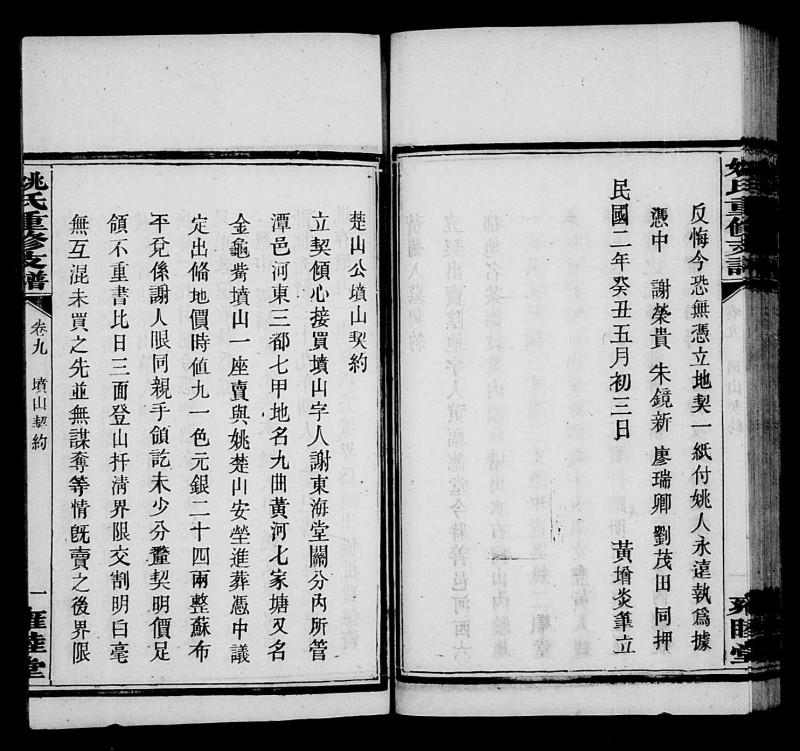 反悔今恐無憑立地契一紙付姚人永遠執爲據
憑中　謝榮貴　朱鏡新　廖瑞卿　劉茂田　同押
民國二年癸丑五月初三日　黃增炎筆立
楚山公墳山契約
立契傾心接買墳山字人謝東海堂關分內所管
潭邑河東三都七甲地名九曲黃河七家塘又名
金龜嘴墳山一座賣與姚楚山安塋進葬憑中議
定出俻地價時値九一色元銀二十四兩整蘇布
平兌係謝人眼同親手領訖未少分釐契明價足
領不重書比日三面登山扦淸界限交割明白毫
無互混未買之先並無謀奪等情旣賣之後界限
姚氏重修支譜　卷九　墳山契約　一　雍睦堂